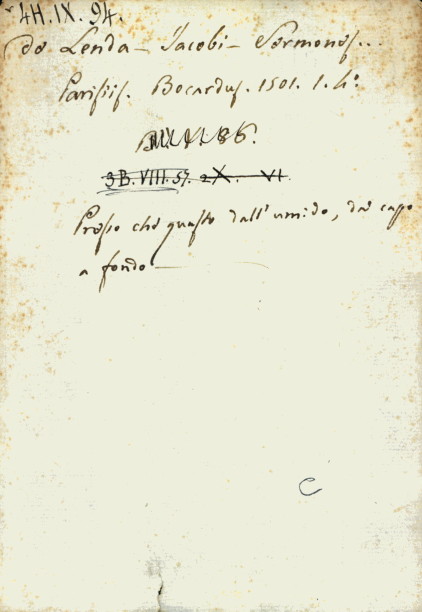 4H.IX.94.
de Lenda - Jacobi - Sermones...
Parisiis. Bocardus. 1501. 1. 4°.
3B.VIII.57. 2X. VI.
Presso che guasto dall'umido, da capo
a fondo
C